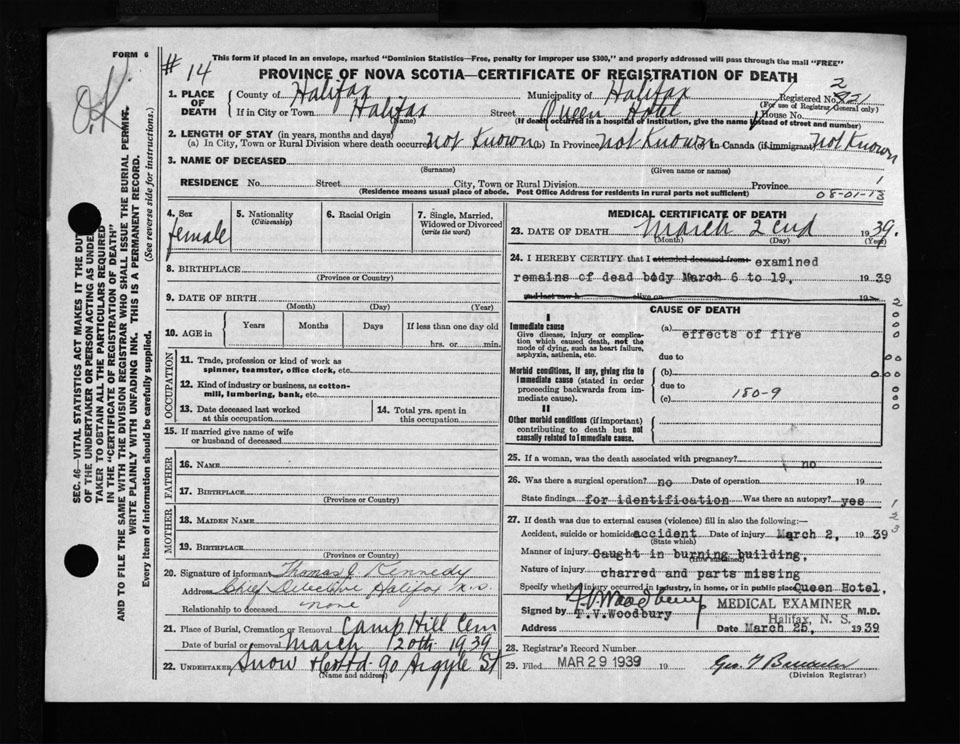 FORM 6
This form if placed in an envelope, marked "Dominion Statistics—Free, penalty for improper use $300," and properly addressed will pass through the mail "FREE"
# 14
O.K.
PROVINCE OF NOVA SCOTIA—CERTIFICATE OF REGISTRATION OF DEATH
1. PLACE OF DEATH
County of Halifax Municipality of Halifax Registered No. 2 821
(For use of Registrar General only)
If in City or Town Halifax Street Queen Hotel House No.
(Name) (If death occurred in a hospital or institution, give the name instead of street and number)
2. LENGTH OF STAY (in years, months and days)
(a) In City, Town or Rural Division where death occurred not Known (b) In Province not Known (c) In Canada (if immigrant) not Known
3. NAME OF DECEASED
(Surname) (Given name or names)
RESIDENCE No. Street City, Town or Rural Division Province 1
(Residence means usual place of abode. Post Office Address for residents in rural parts not sufficient) 08-01-13
4. Sex female
5. Nationality (Citizenship)
6. Racial Origin
7. Single, Married, Widowed or Divorced (write the word)
8. BIRTHPLACE
(Province or Country)
9. DATE OF BIRTH
(Month) (Day) (Year)
10. AGE in Years Months Days If less than one day old
hrs. or min.
OCCUPATION
11. Trade, profession or kind of work as spinner, teamster, office clerk, etc.
12. Kind of industry or business, as cotton-mill, lumbering, bank, etc.
13. Date deceased last worked at this occupation
14. Total yrs. spent in this occupation
15. If married give name of wife or husband of deceased
FATHER
16. NAME
17. BIRTHPLACE
(Province or Country)
MOTHER
18. MAIDEN NAME
19. BIRTHPLACE
(Province or Country)
20. Signature of informant Thomas J Kennedy
Address Chief Detective Halifax N.S.
Relationship to deceased none
21. Place of Burial, Cremation or Removal Camp Hill Cem
Date of burial or removal March 20th 1939
22. UNDERTAKER Snow & Co Ltd. 90 Argyle St
(Name and address)
MEDICAL CERTIFICATE OF DEATH
23. DATE OF DEATH March 2 1939.
(Month) (Day) (Year)
24. I HEREBY CERTIFY that I attended deceased from: examined
remains of dead body March 6 to 19, 1939
and last saw h alive on 19
CAUSE OF DEATH
I
Immediate cause
Give disease, injury or complication which caused death, not the mode of dying, such as heart failure, asphyxia, asthenia, etc.
(a) effects of fire
due to
Morbid conditions, if any, giving rise to immediate cause (stated in order proceeding backwards from immediate cause).
(b)
due to
(c) 180-9
II
Other morbid conditions (if important) contributing to death but not causally related to immediate cause.
25. If a woman, was the death associated with pregnancy? no
26. Was there a surgical operation? no Date of operation
State findings for identification Was there an autopsy? yes
27. If death was due to external causes (violence) fill in also the following:—
Accident, suicide or homicide accident Date of injury March 2, 1939
(State which)
Manner of injury Caught in burning building,
Nature of injury charred and parts missing
Specify whether injury occurred in industry, in home, or in public place Queen Hotel,
Signed by F.V. Woodbury M.D.
F.V.Woodbury
MEDICAL EXAMINER
Halifax, N. S.
Address Date March 25, 1939
28. Registrar's Record Number
29. Filed MAR 29 1939 19
(Division Registrar)
SEC. 46—VITAL STATISTICS ACT MAKES IT THE DUTY
OF THE UNDERTAKER OR PERSON ACTING AS UNDERTAKER
TO OBTAIN ALL THE PARTICULARS REQUIRED
IN THE "CERTIFICATE OF REGISTRATION OF DEATH"
AND TO FILE THE SAME WITH THE DIVISION REGISTRAR WHO SHALL ISSUE THE BURIAL PERMIT.
WRITE PLAINLY WITH UNFADING INK. THIS IS A PERMANENT RECORD.
Every item of information should be carefully supplied. (See reverse side for instructions.)